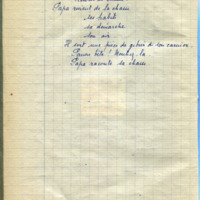 Papa revient de la chasse
ses habits
sa démarche
son air
Il sort une pièce de gibier de son carnier
Pauvre bête ! Montrez-la.
Papa raconte sa chasse